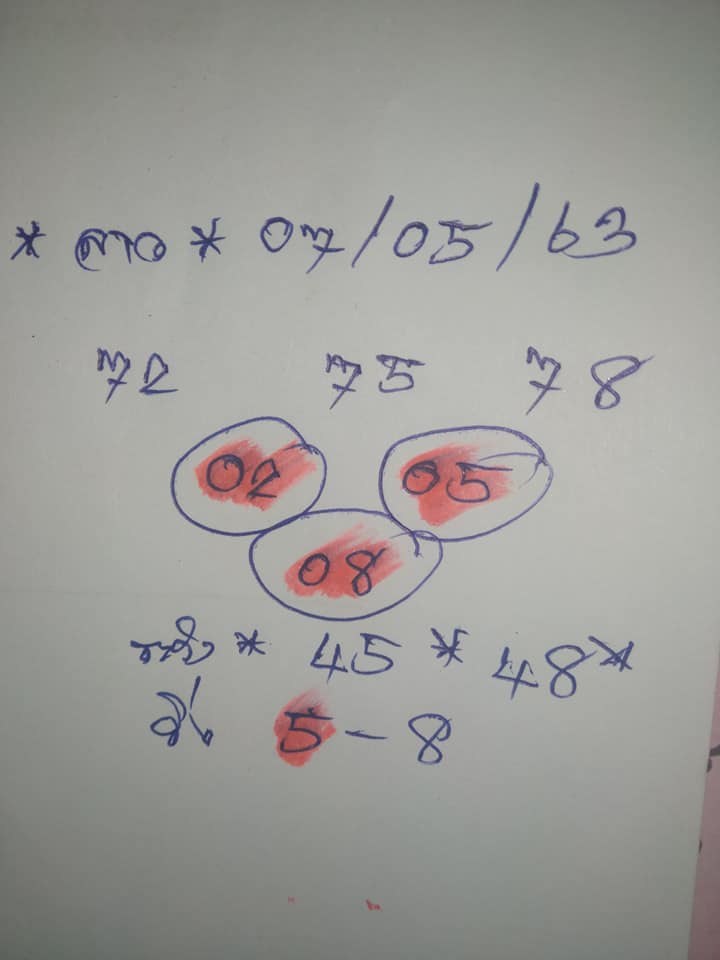 * ลาว * 07/05/63
72 75 78
02 05
08
* 45 * 48*
5-8